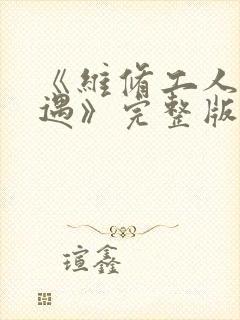 《維脩工人
遇》完整版
瑄鑫